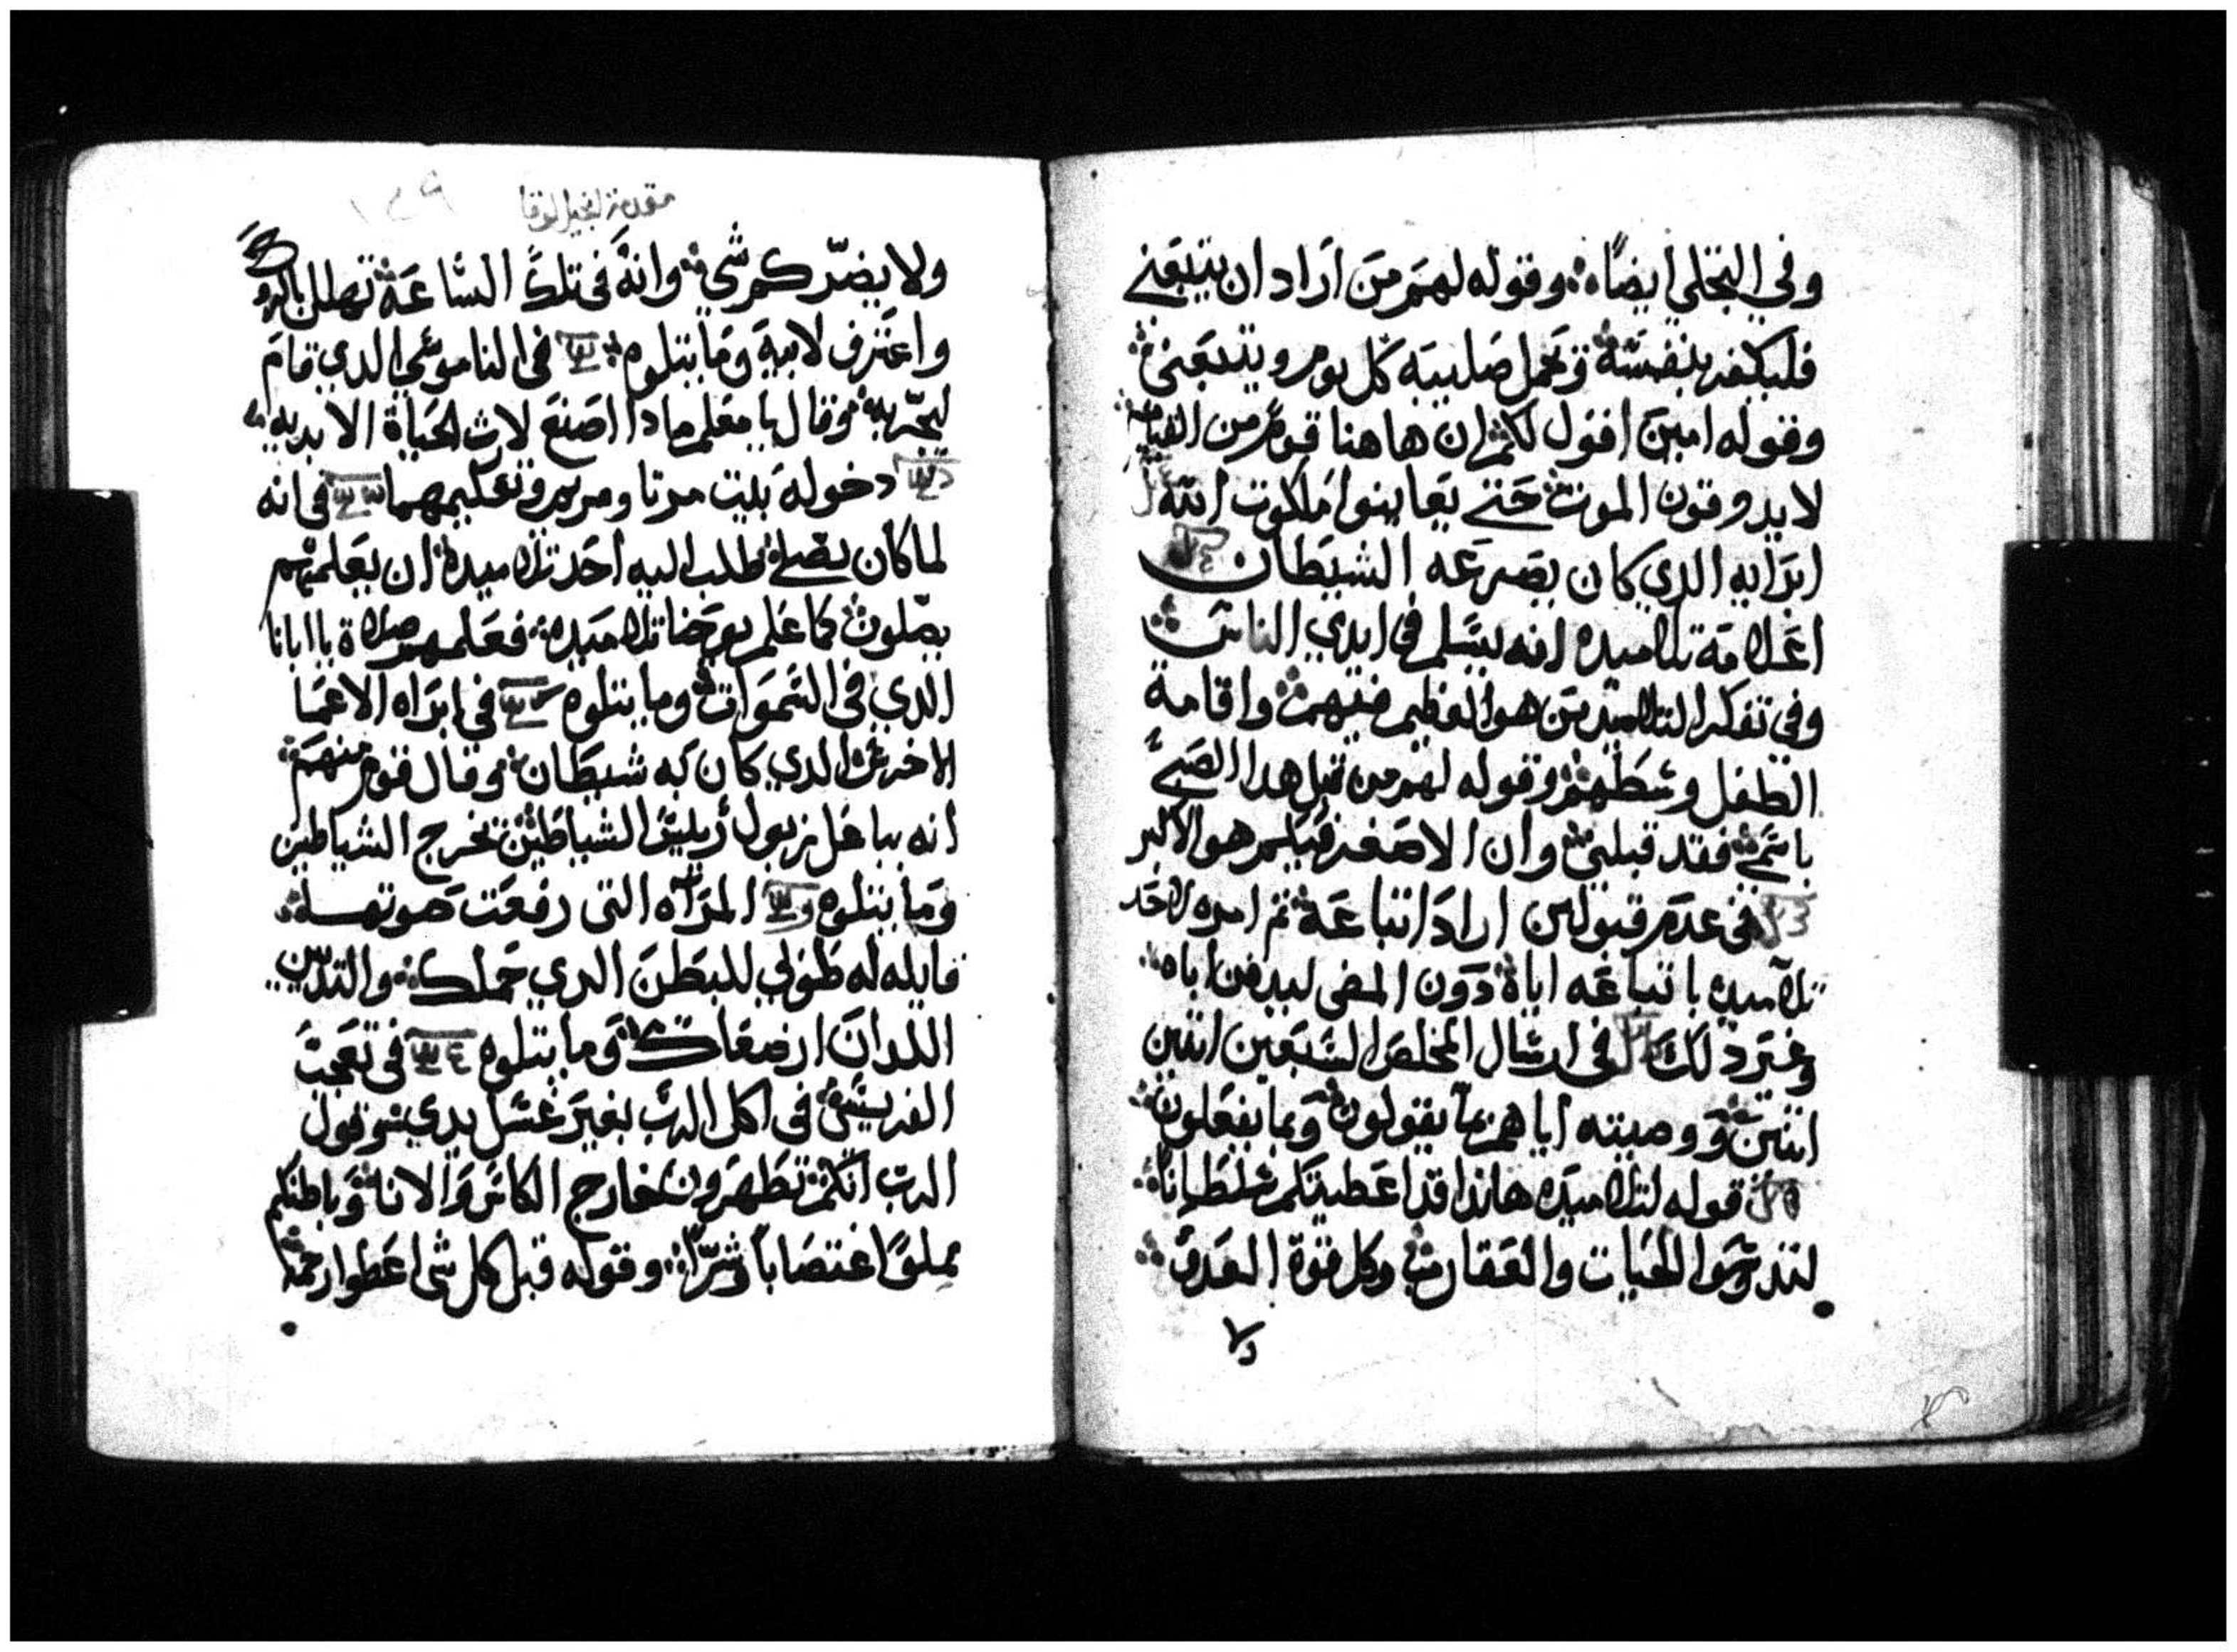 وفي التجلي ايضًا ۰ وقوله لهم من اراد ان يتبعني
فليكفر بنفسه ويحمل صليبه كل يوم ويتبعني
وقوله امين اقول لكم ان هاهنا قوم من القيام
لا يدوقون الموت حتي يعاينوا ملكوت الله
ابرايه الدي كان يصرعه الشيطان
اعلامة تلاميده انه يسلم في ايدي الناس
وفي تفكر التلاميد من هو العظيم فيهم واقامة
الطفل وسطهم وقوله لهم من قبل هدا الصبي
باسمي فقد قبلني وان الاصغر فيكم هو الاكبر
في عدم قبول من اراد اتباعه ثم امره لاحد
تلاميده باتباعه اياه دون المضي ليدفن اباه
وغير دلك في ارسال المخلص السبعين اتنين
اتنين ووصيته اياهم بما يقولون وبما يفعلون
قوله لتلاميده هاندا قد اعطيتكم سلطانًا
لتدوسوا الحيات والعقارب وكل قوة العدو
ولا
مقدمة انجيل لوقا
١٤٩
ولا يضركم شي وانه في تلك الساعة تهلل بالروح
واعترف لابيه وما يتلوه في الناموسي الدي قام
ليجربه وقال يا معلم مادا اصنع لارث الحياة الابديه
دخوله بيت مرتا ومريم وتعليمهما في انه
لما كان يصلي طلب اليه احد تلاميده ان يعلمهم
يصلون كما علم يوحنا تلاميده فعلمهم صلاة يا ابانا
الدي في السموات وما يتلوه في ابراه الاعما
الاخرس الدي كان به شيطان وقال قوم منهم
انه بباعل زبول رييس الشياطين يخرج الشياطين
وما يتلوه المراه التي رفعت صوتها
قايله له طوبي للبطن الدي حملك والتديين
اللدان ارضعاك وما يتلوه في تعجب
الفريسي في اكل الرب بغير غسل يدي وقول
الرب انكم تطهرون خارج الكاس والانا وباطنكم
مملوًا اغتصابًا وشرًا وقوله قبل كل شي اعطوا رحمة